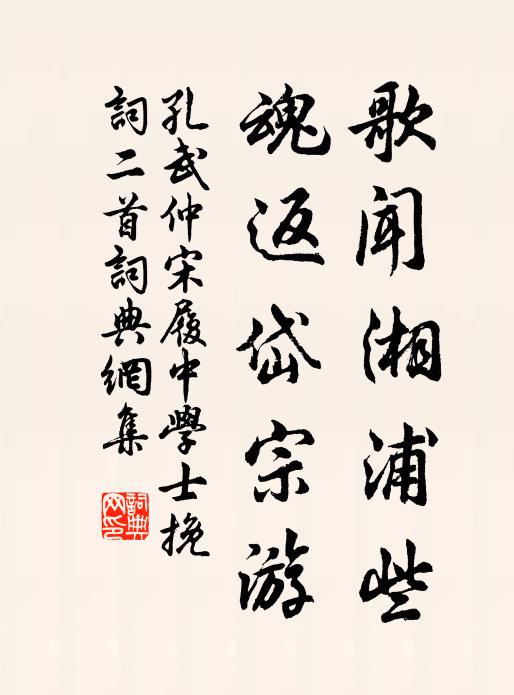 歌闻湘浦些
魂返岱宗游
孔武仲宋履中學士挽
詞二首詞典網集
詞典网印